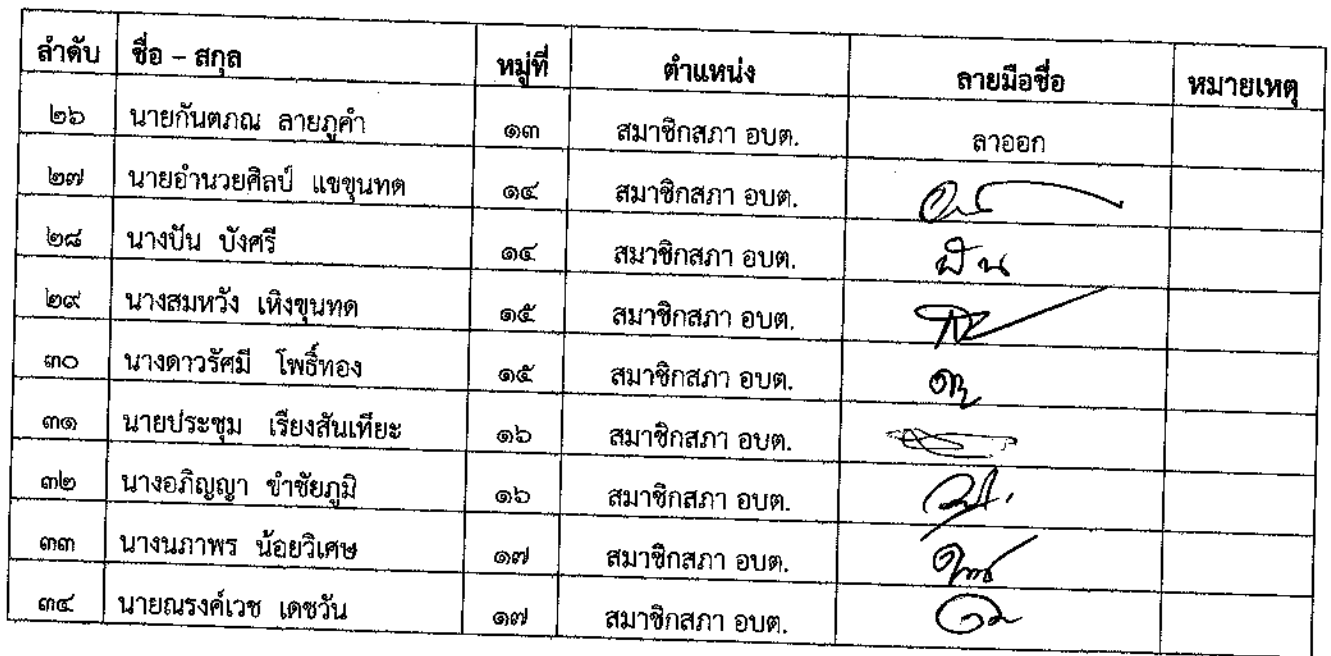 ลำดับ ชื่อ – สกุล หมู่ที่ ตำแหน่ง ลายมือชื่อ หมายเหตุ
๒๖ นายกันตภณ ลายภูคำ ๑๓ สมาชิกสภา อบต. ลาออก
๒๗ นายอำนวยศิลป์ แขขุนทด ๑๔ สมาชิกสภา อบต.
๒๘ นางปัน บังศรี ๑๔ สมาชิกสภา อบต. ปัน
๒๙ นางสมหวัง เหิงขุนทด ๑๕ สมาชิกสภา อบต.
๓๐ นางดาวรัศมี โพธิ์ทอง ๑๕ สมาชิกสภา อบต.
๓๑ นายประชุม เรียงสันเทียะ ๑๖ สมาชิกสภา อบต.
๓๒ นางอภิญญา ขำชัยภูมิ ๑๖ สมาชิกสภา อบต.
๓๓ นางนภาพร น้อยวิเศษ ๑๗ สมาชิกสภา อบต.
๓๔ นายณรงค์เวช เดชวัน ๑๗ สมาชิกสภา อบต.